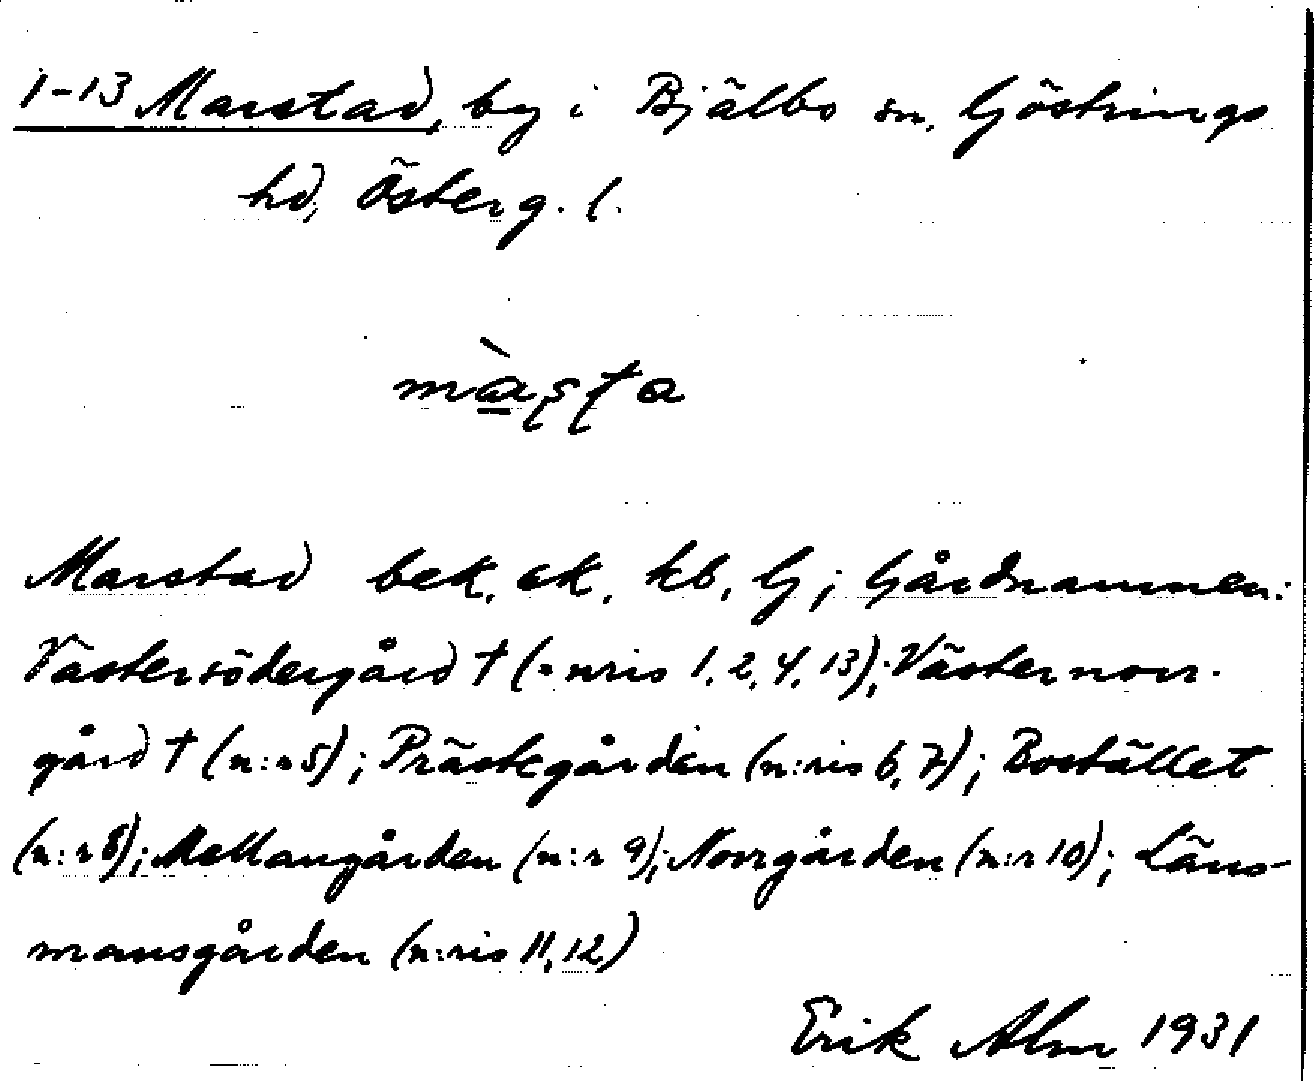 1-13 Marstad, by i Bjälbo sn. Göstrings
hd, Österg. l.
màʂʈa
Marstad bek. ek. kb. G; Gårdnamnen:
Västersödergård † (= nris 1, 2, 4, 13); Västernorr-
gård † (n:r 5); Prästgården (n:ris 6, 7); Bostället
(n:r 8); Mellangården (n:r 9); Norrgården (n:r 10); Läns-
mansgården (n:ris 11, 12)
Erik Alm 1931